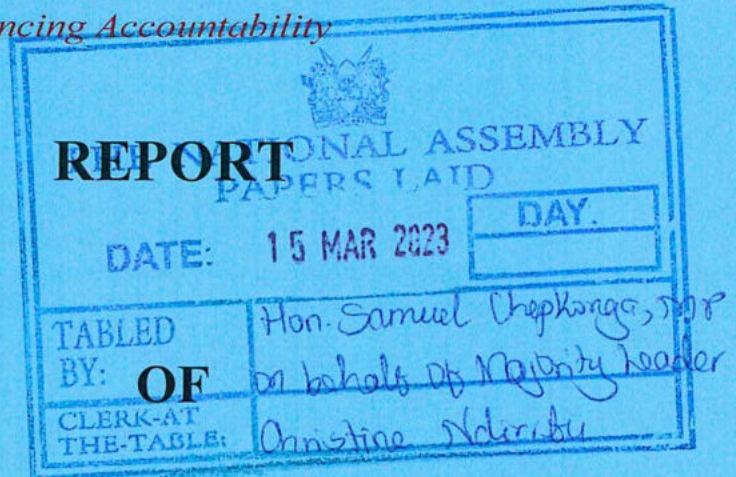 ncing Accountability
THE NATIONAL ASSEMBLY
REPORT
PAPERS LAID
DATE: 15 MAR 2023
DAY.
TABLED BY: Hon. Samuel Chepkonga, MP
on behalf of Majority Leader
OF
CLERK-AT THE-TABLE: Christine Ndiritu